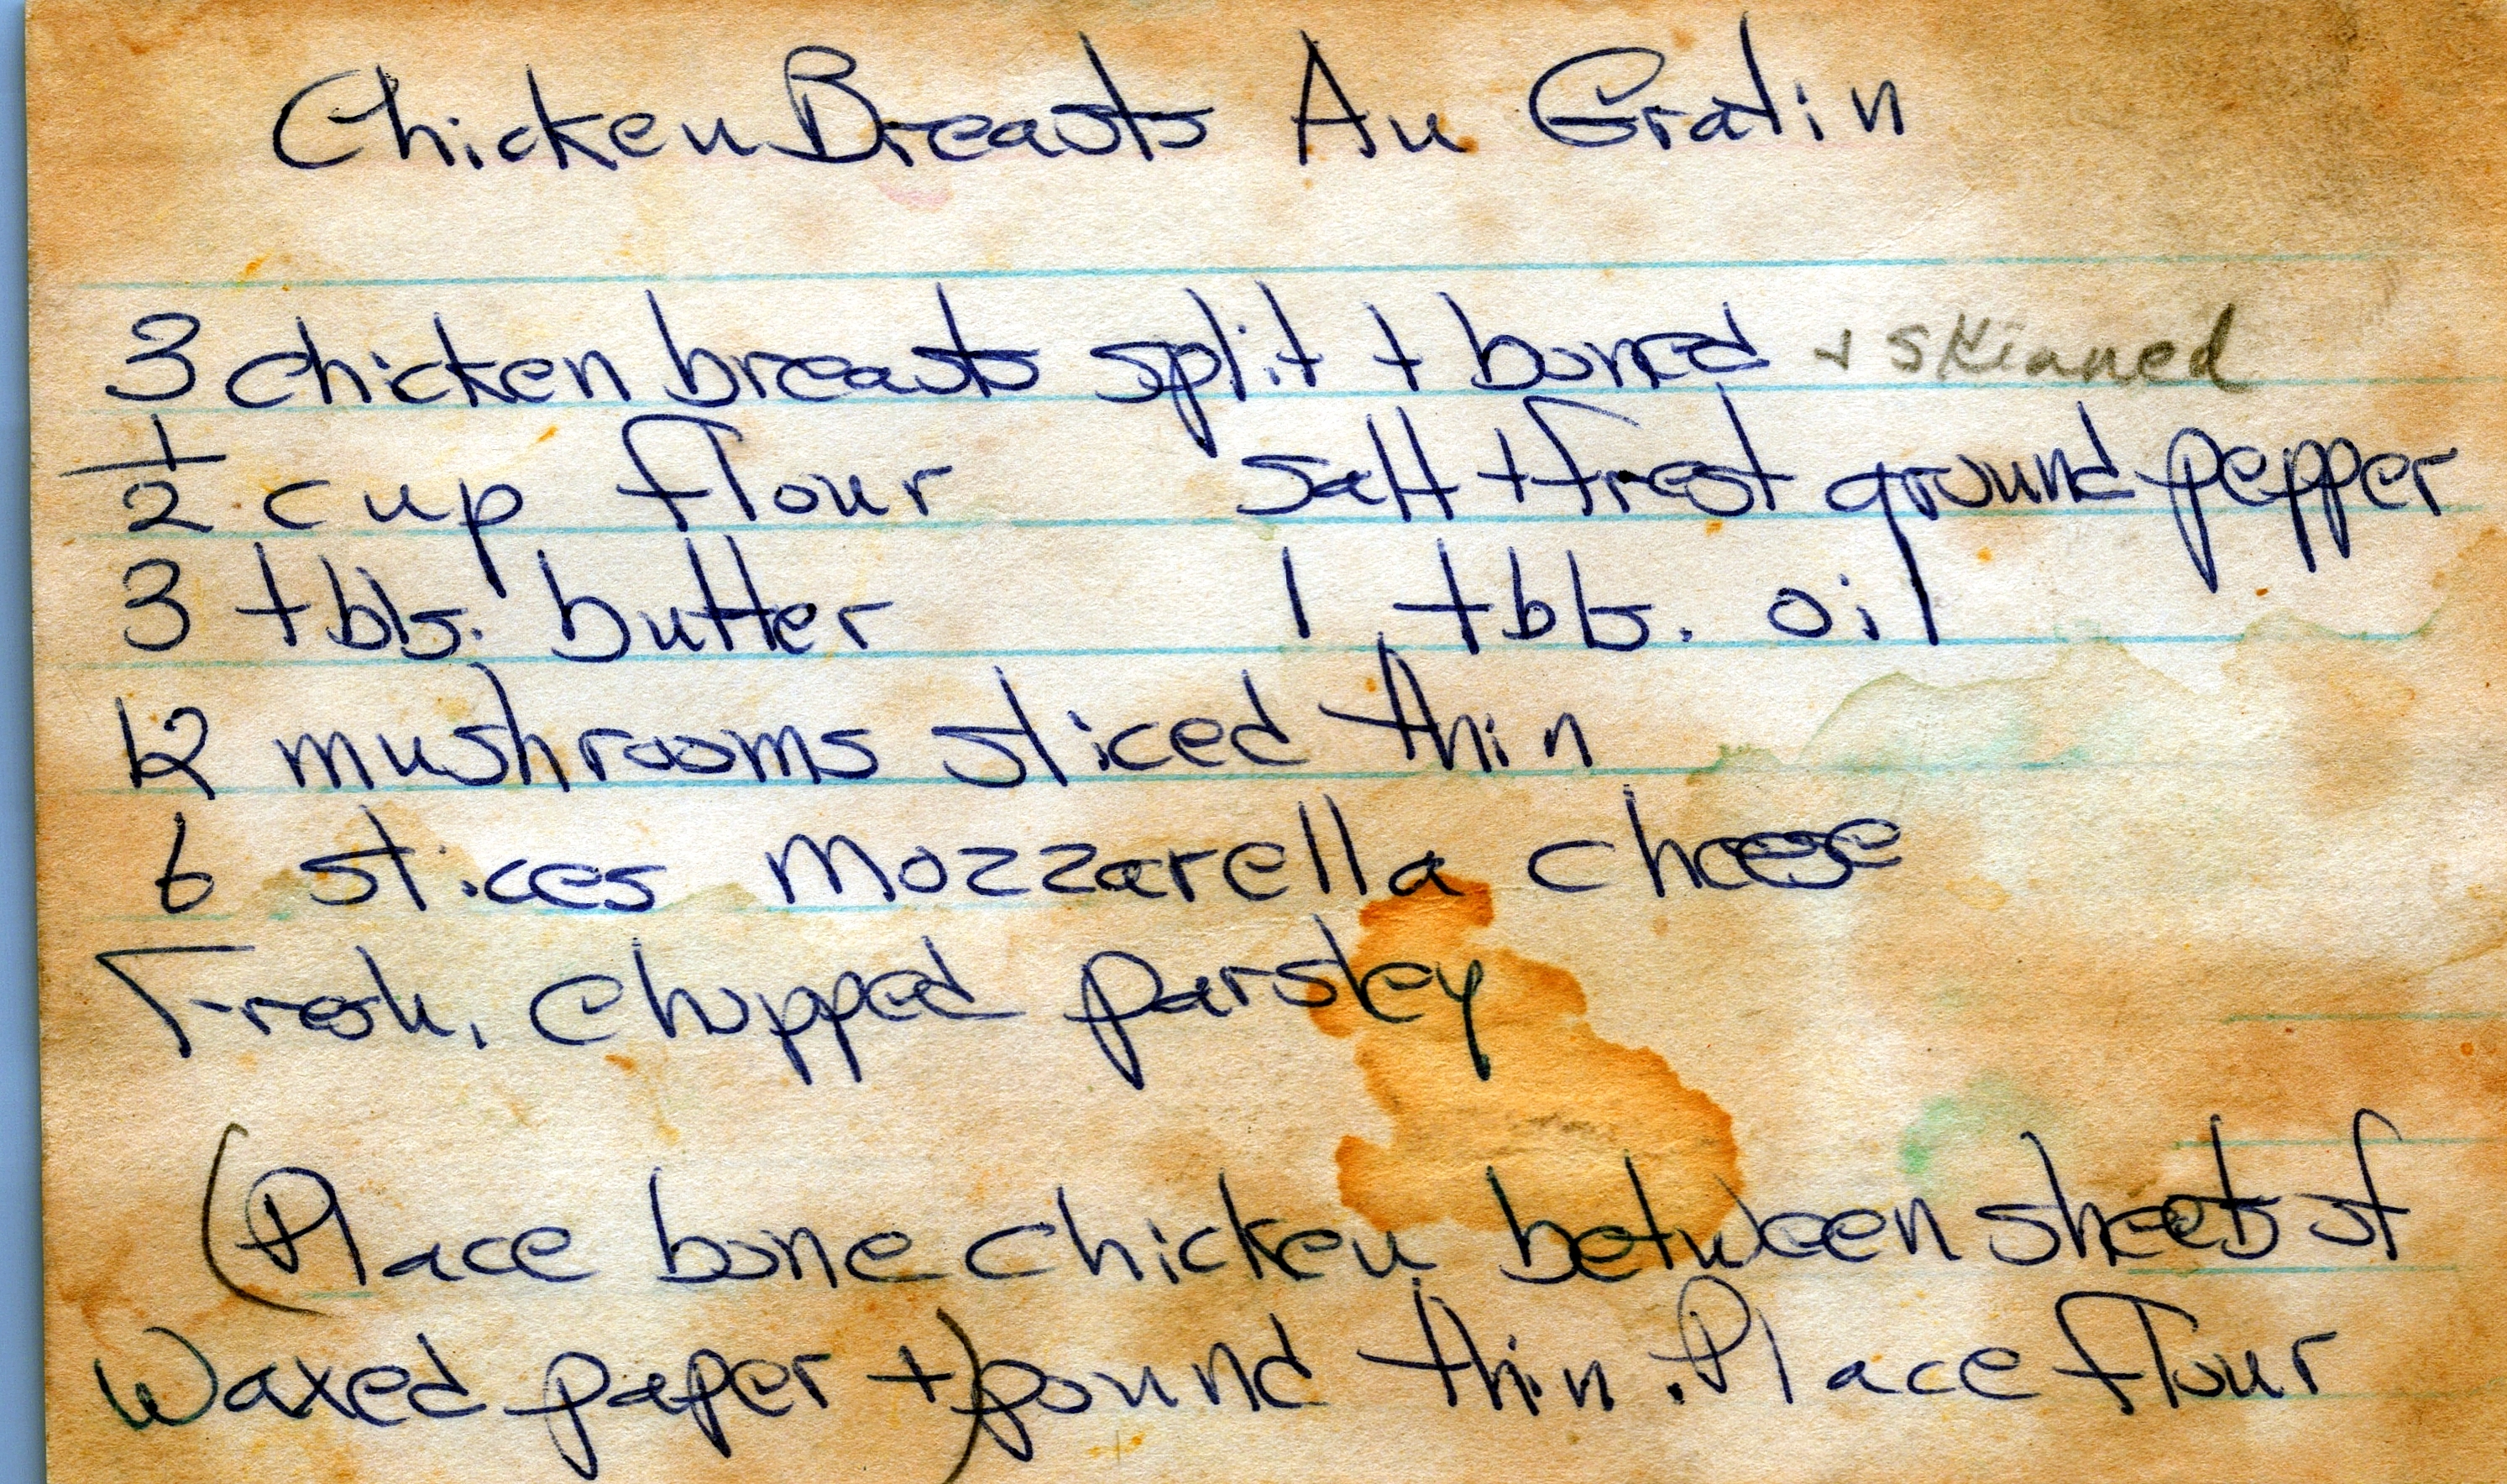 Chicken Breasts Au Gratin
3 chicken breasts split + boned + skinned
1/2 cup flour salt + fresh ground pepper
3 tbls. butter 1 tbls. oil
12 mushrooms sliced thin
6 slices Mozzarella cheese
Fresh, chopped parsley
(Place bone chicken between sheets of
Waxed paper +) pound thin. Place flour